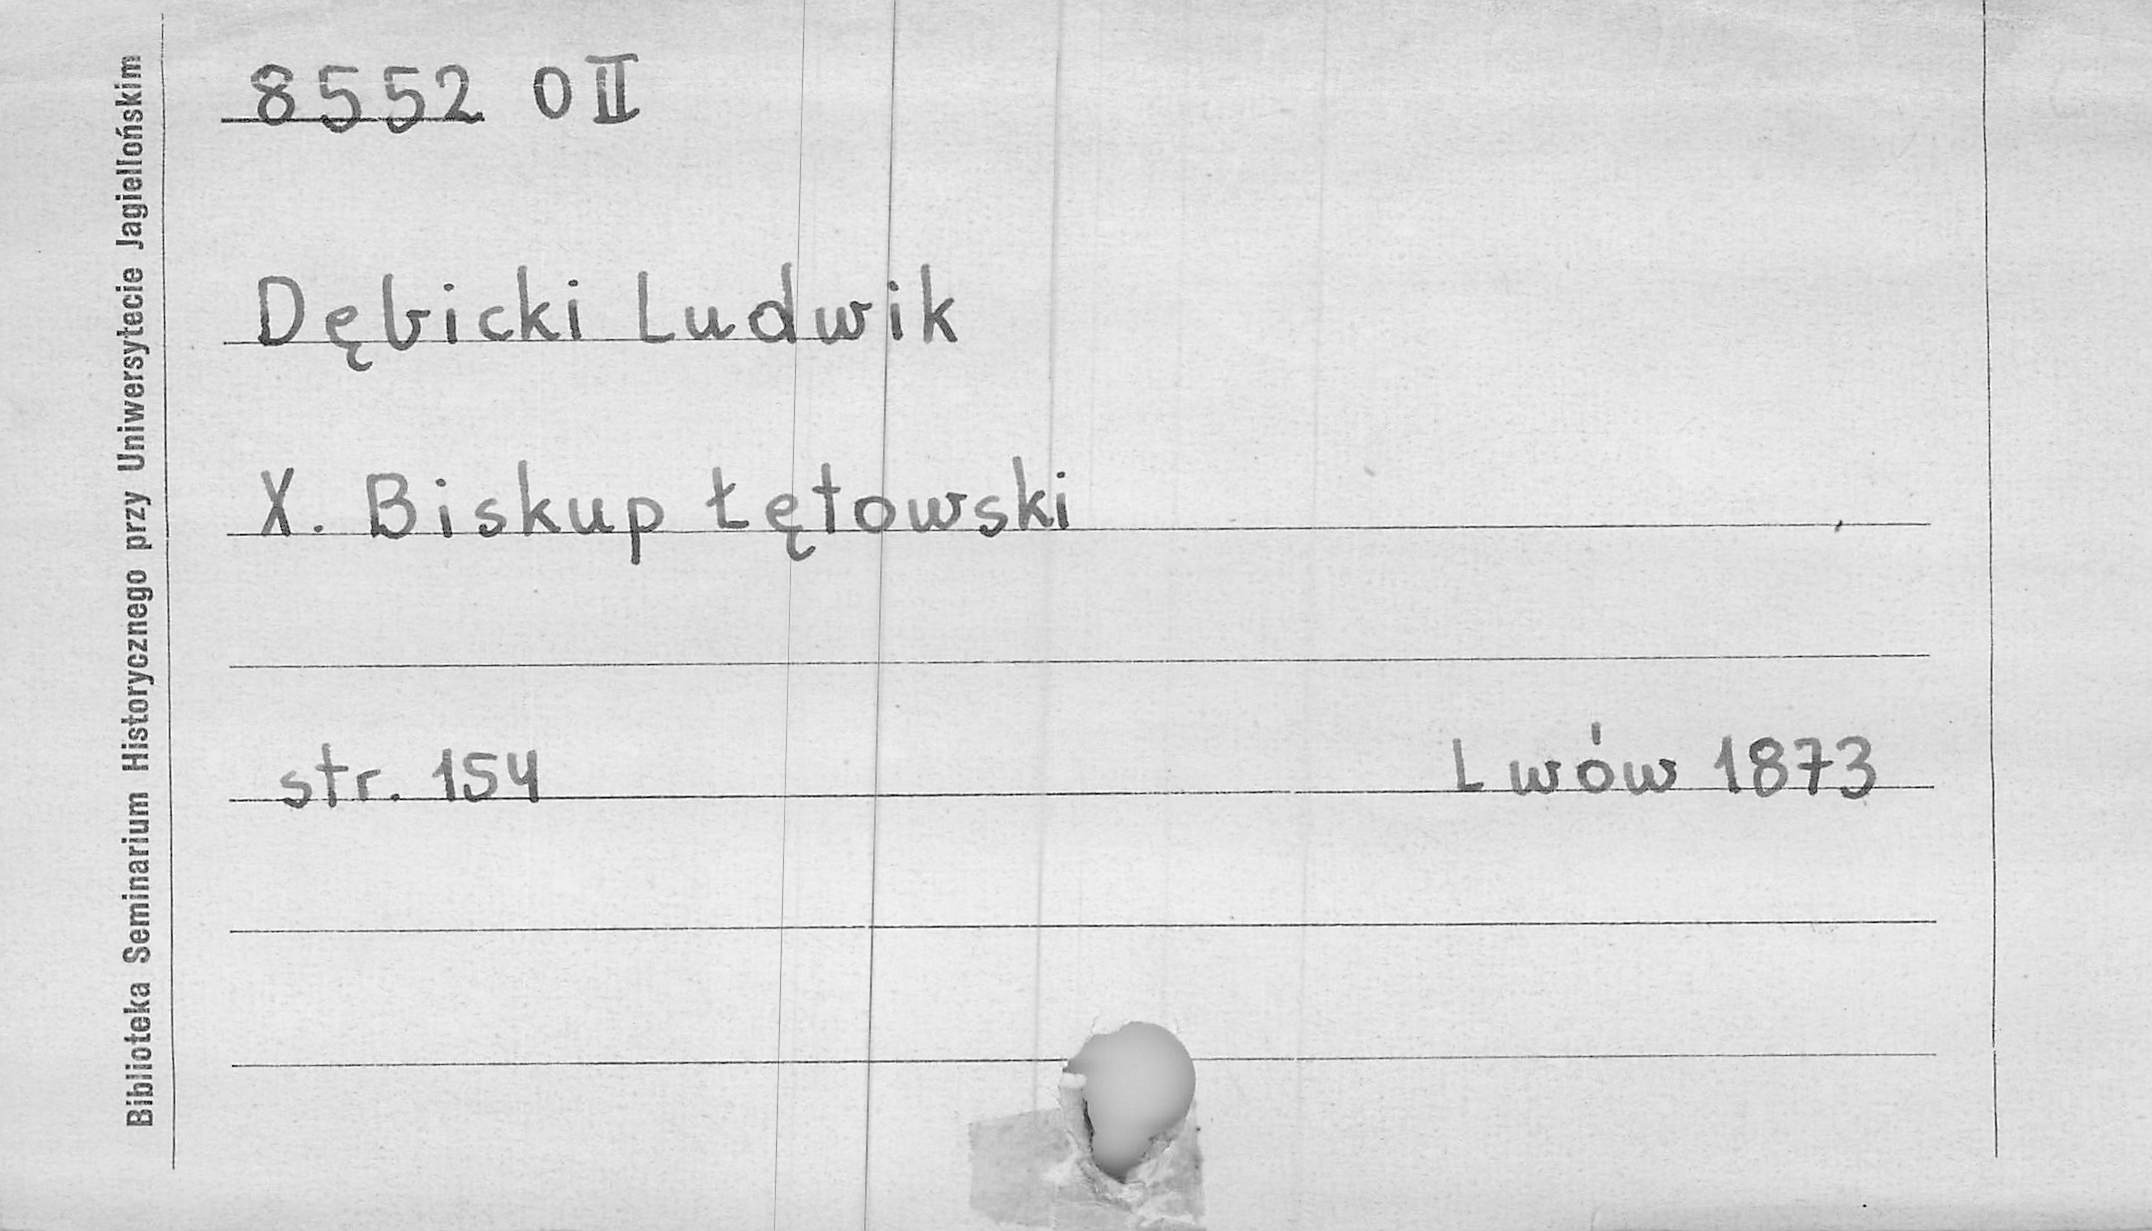 8552 O II
Dębicki Ludwik
X. Biskup Łętowski
str. 154 Lwów 1873
Biblioteka Seminarium Historycznego przy Uniwersytecie Jagiellońskim